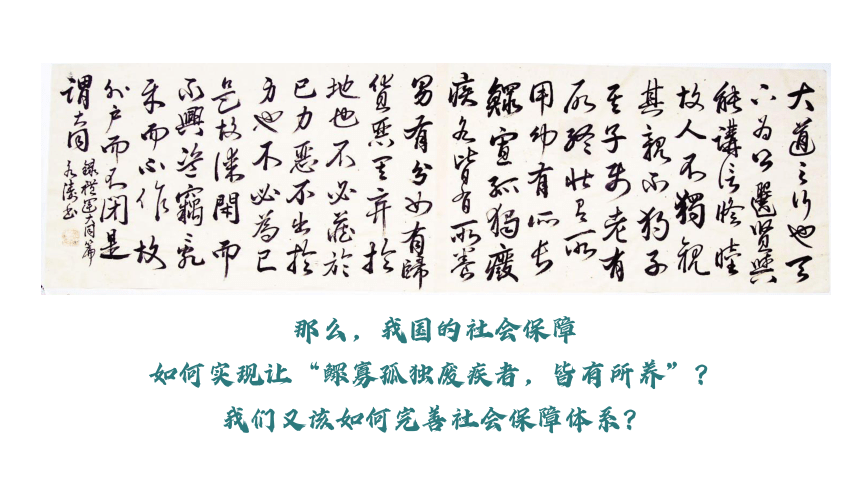 大道之行也天
下为公選贤與
能講信修睦
故人不獨親
其親不独子
其子使老有
所终壮有所
用幼有所长
鰥寡孤獨廢
疾者皆有所養
男有分女有歸
貨惡其弃於
地也不必藏於
己力惡不出於
身也不必為己
是故谋閉而
不興盗竊乱
贼而不作故
外户而不闭是
謂大同
録禮運大同篇
那么，我国的社会保障
如何实现让“鳏寡孤独废疾者，皆有所养”？
我们又该如何完善社会保障体系？